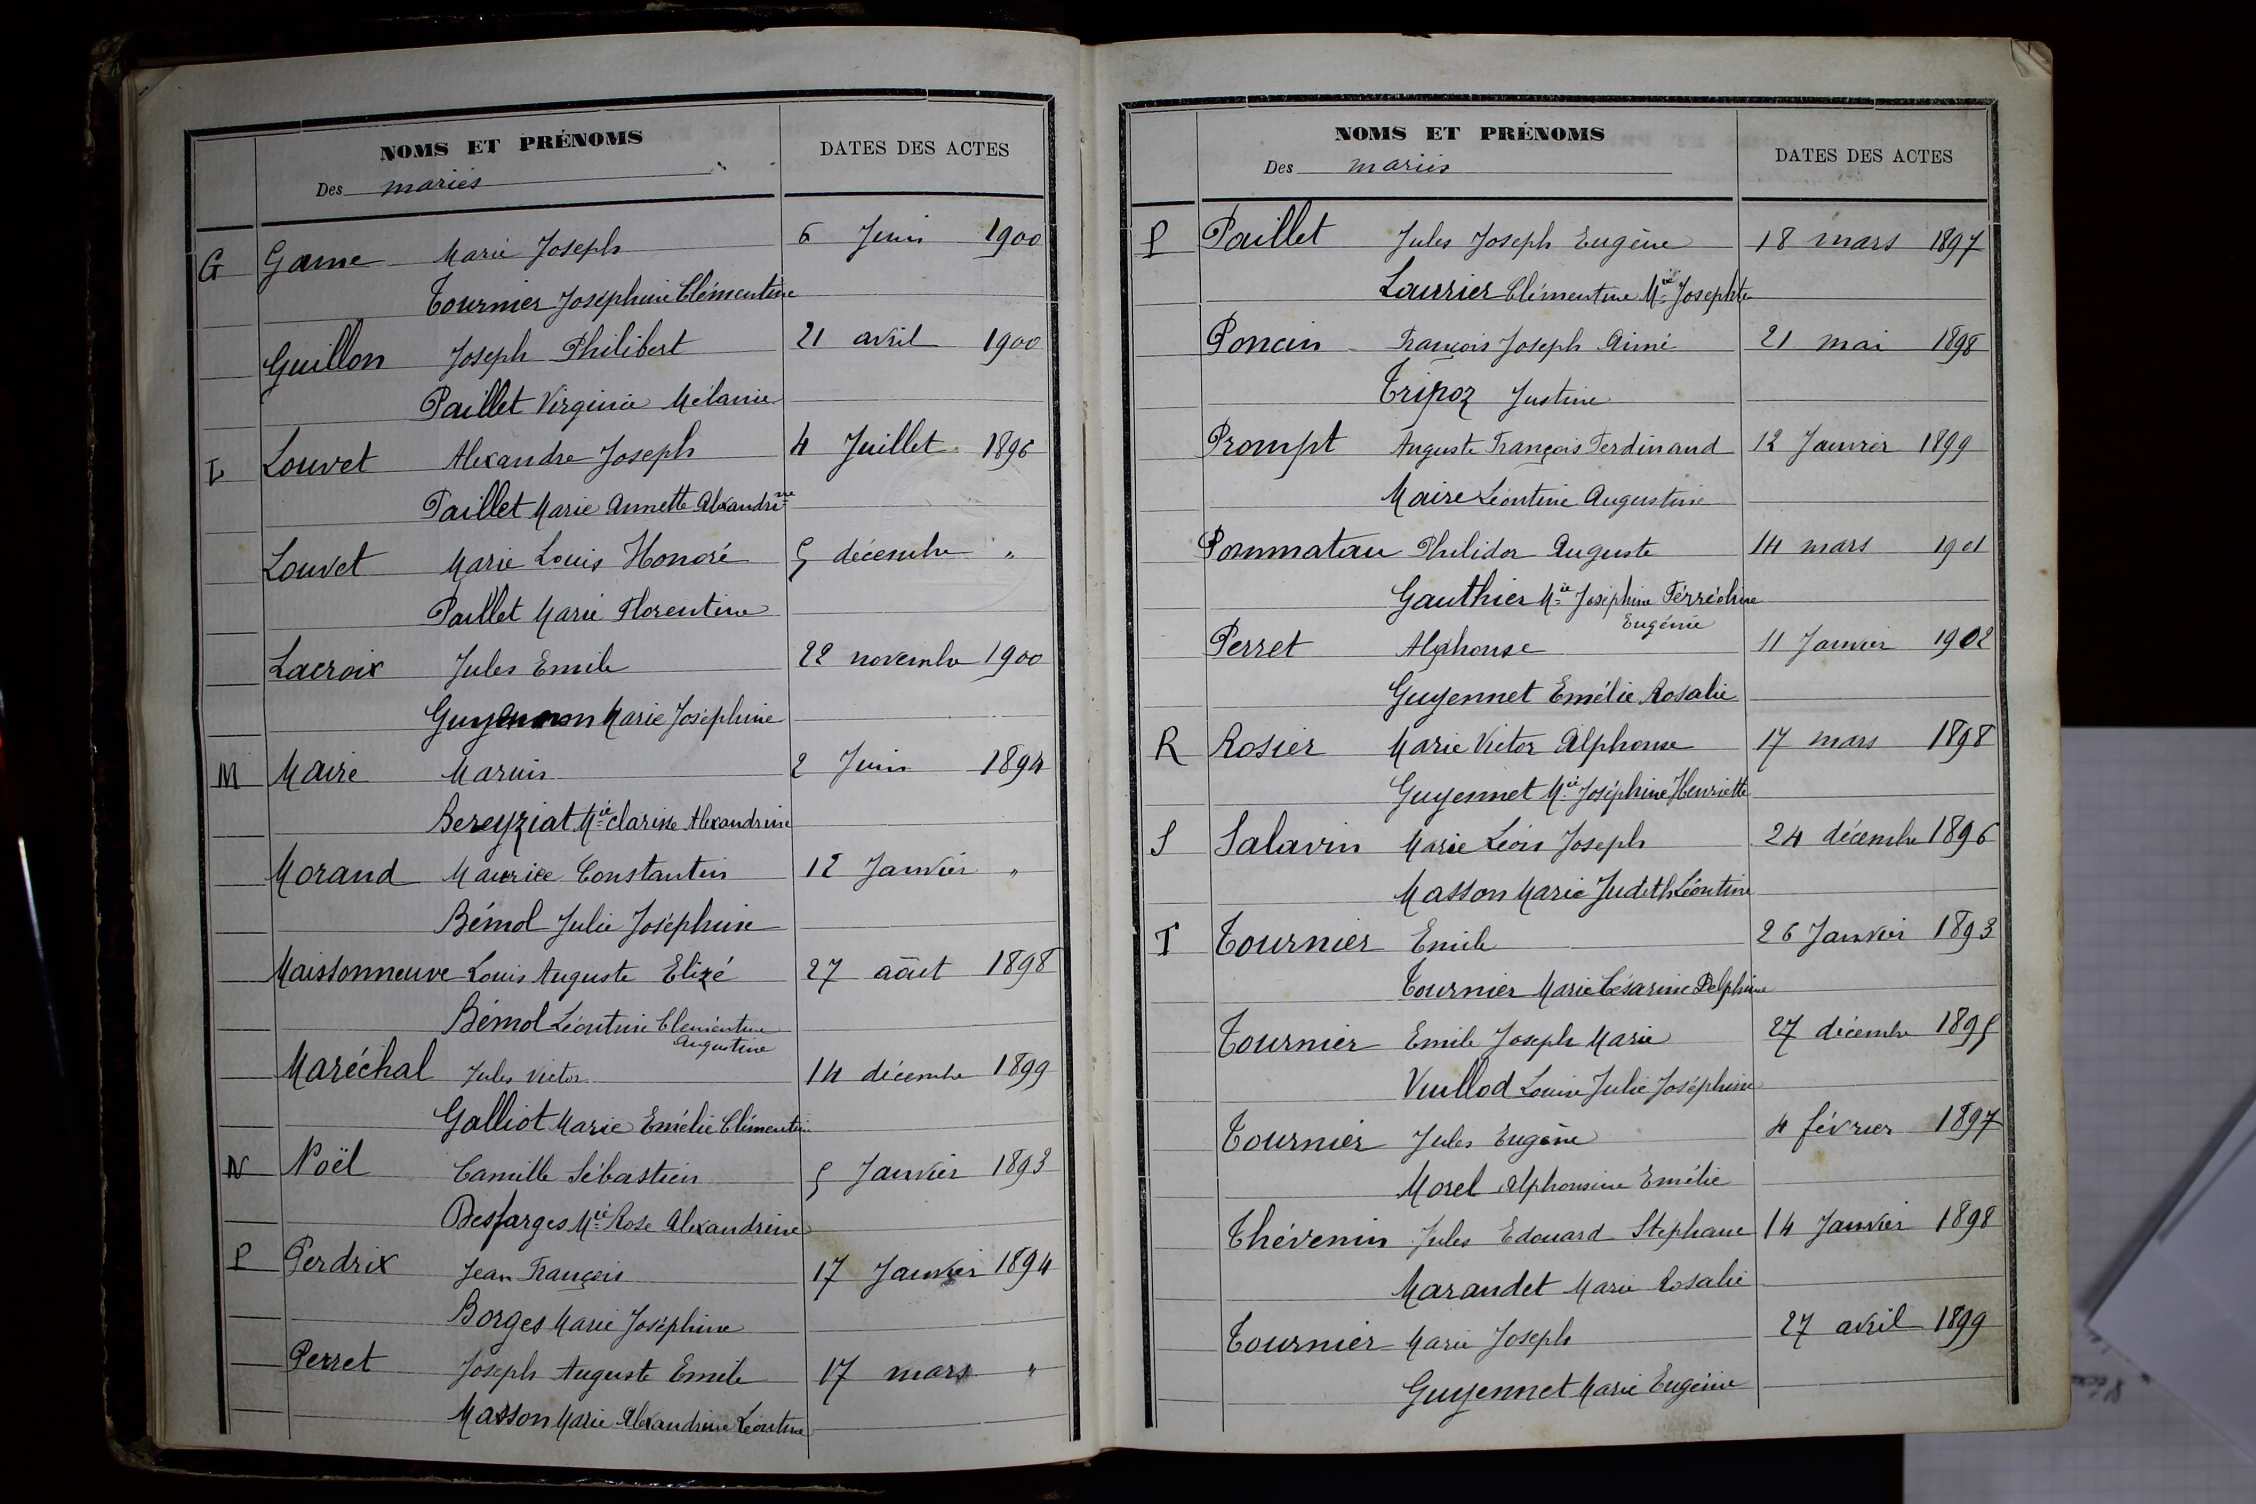 NOMS ET PRÉNOMS
Des mariés
DATES DES ACTES
G Game Marie Joseph 6 Juin 1900
Tournier Joséphine Clémentine
Guillon Joseph Philibert 21 avril 1900
Paillet Virginie Mélanie
L Louvet Alexandre Joseph 4 Juillet 1896
Paillet Marie Annette Alexandrine
Louvet Marie Louis Honoré 5 décembre "
Paillet Marie Florentine
Lacroix Jules Emile 22 novembre 1900
Marie Joséphine
M Maire Marius 2 Juin 1894
Bereyziat Mie Clarisse Alexandrine
Morand Maurice Constantin 12 Janvier "
Bémol Julie Joséphine
Maissonneuve Louis Auguste Elizé 27 août 1898
Bémol Léontine Clémentine
Augustine
Maréchal Jules Victor 14 décembre 1899
Galliot Marie Emélie Clémentine
N Noël Camille Sébastien 5 Janvier 1893
Desfarges Mie Rose Alexandrine
P Perdrix Jean François 17 Janvier 1894
Borges Marie Joséphine
Perret Joseph Auguste Emile 17 mars "
Masson Marie Alexandrine Léontine
NOMS ET PRÉNOMS
Des mariés
DATES DES ACTES
P Paillet Jules Joseph Eugène 18 mars 1897
Laurier Clémentine Mie Josephte
Poncin François Joseph Aimé 21 mai 1898
Tripoz Justine
Prompt Auguste François Ferdinand 12 Janvier 1899
Maire Léontine Augustine
Pommatau Philidor Auguste 14 mars 1901
Gauthier Mie Joséphine
Eugénie
Perret Alphonse 11 Janvier 1902
Guyennet Emélie Rosalie
R Rosier Marie Victor Alphonse 17 mars 1898
Guyennet Mie Joséphine Henriette
S Salavin Marie Léon Joseph 24 décembre 1896
Masson Marie Judith Léontine
T Tournier Emile 26 Janvier 1893
Tournier Marie Césarine Delphine
Tournier Emile Joseph Marie 27 décembre 1895
Vuillod Louise Julie Joséphine
Tournier Jules Eugène 4 février 1897
Morel Alphonsine Emélie
Thévenin Jules Edouard Stephane 14 Janvier 1898
Marandet Marie Rosalie
Tournier Marie Joseph 27 avril 1899
Guyennet Marie Eugénie